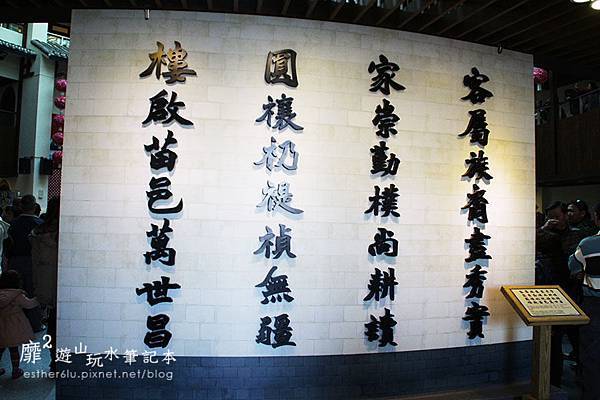 客屬族裔盡秀實
家崇勤樸尚耕讀
圓禳礽禔禎無疆
樓啟苗邑萬世昌
靡2遊山玩水筆記本
esther6lu.pixnet.net/blog